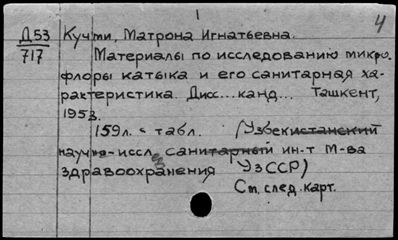 1
4
Д53 Кучми, Матрона Игнатьевна.
717 Материалы по исследованию микро-
флоры катыка и его санитарная ха-
рактеристика. Дисс... канд... Ташкент,
1953.
159л. с табл. (Узбекистанский
научно-иссл. санитарный ин-т М-ва
здравоохранения УзССР)
См. след. карт.